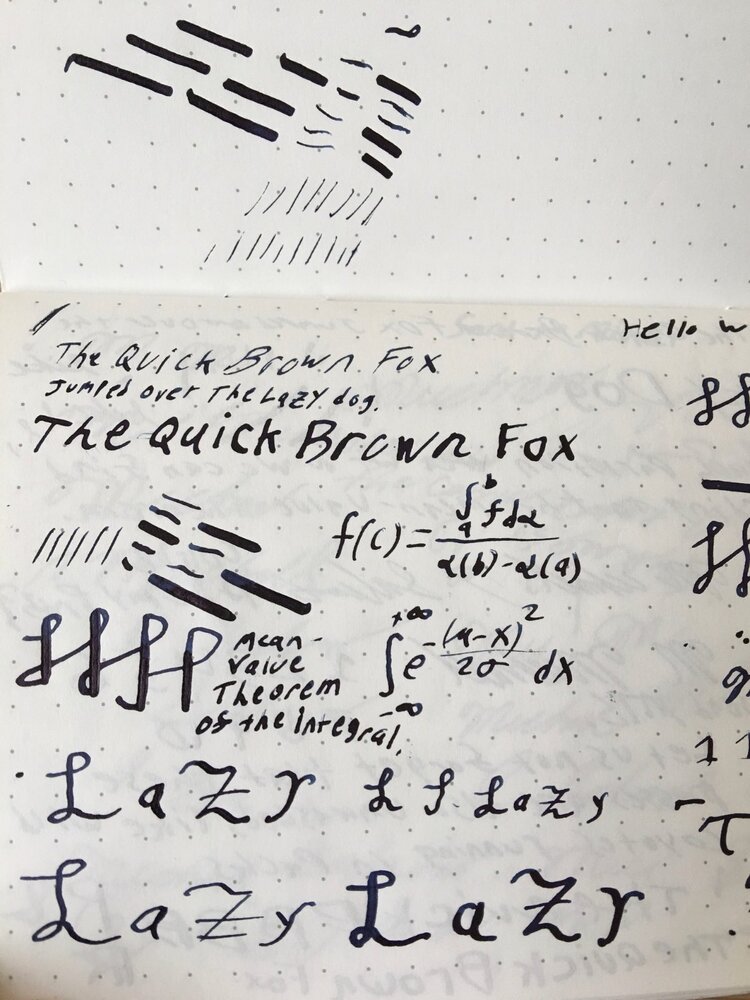 Hello w
The Quick Brown Fox
Jumped over The Lazy dog.
The Quick Brown Fox
f(c) = ∫ₐᵇ f dα / α(b) - α(a)
Mean-
Value
Theorem
of the integral.
∫₋∞⁺∞ e^-(u-x)²/2σ dx
LaZy
L L LaZy
LaZy LaZy